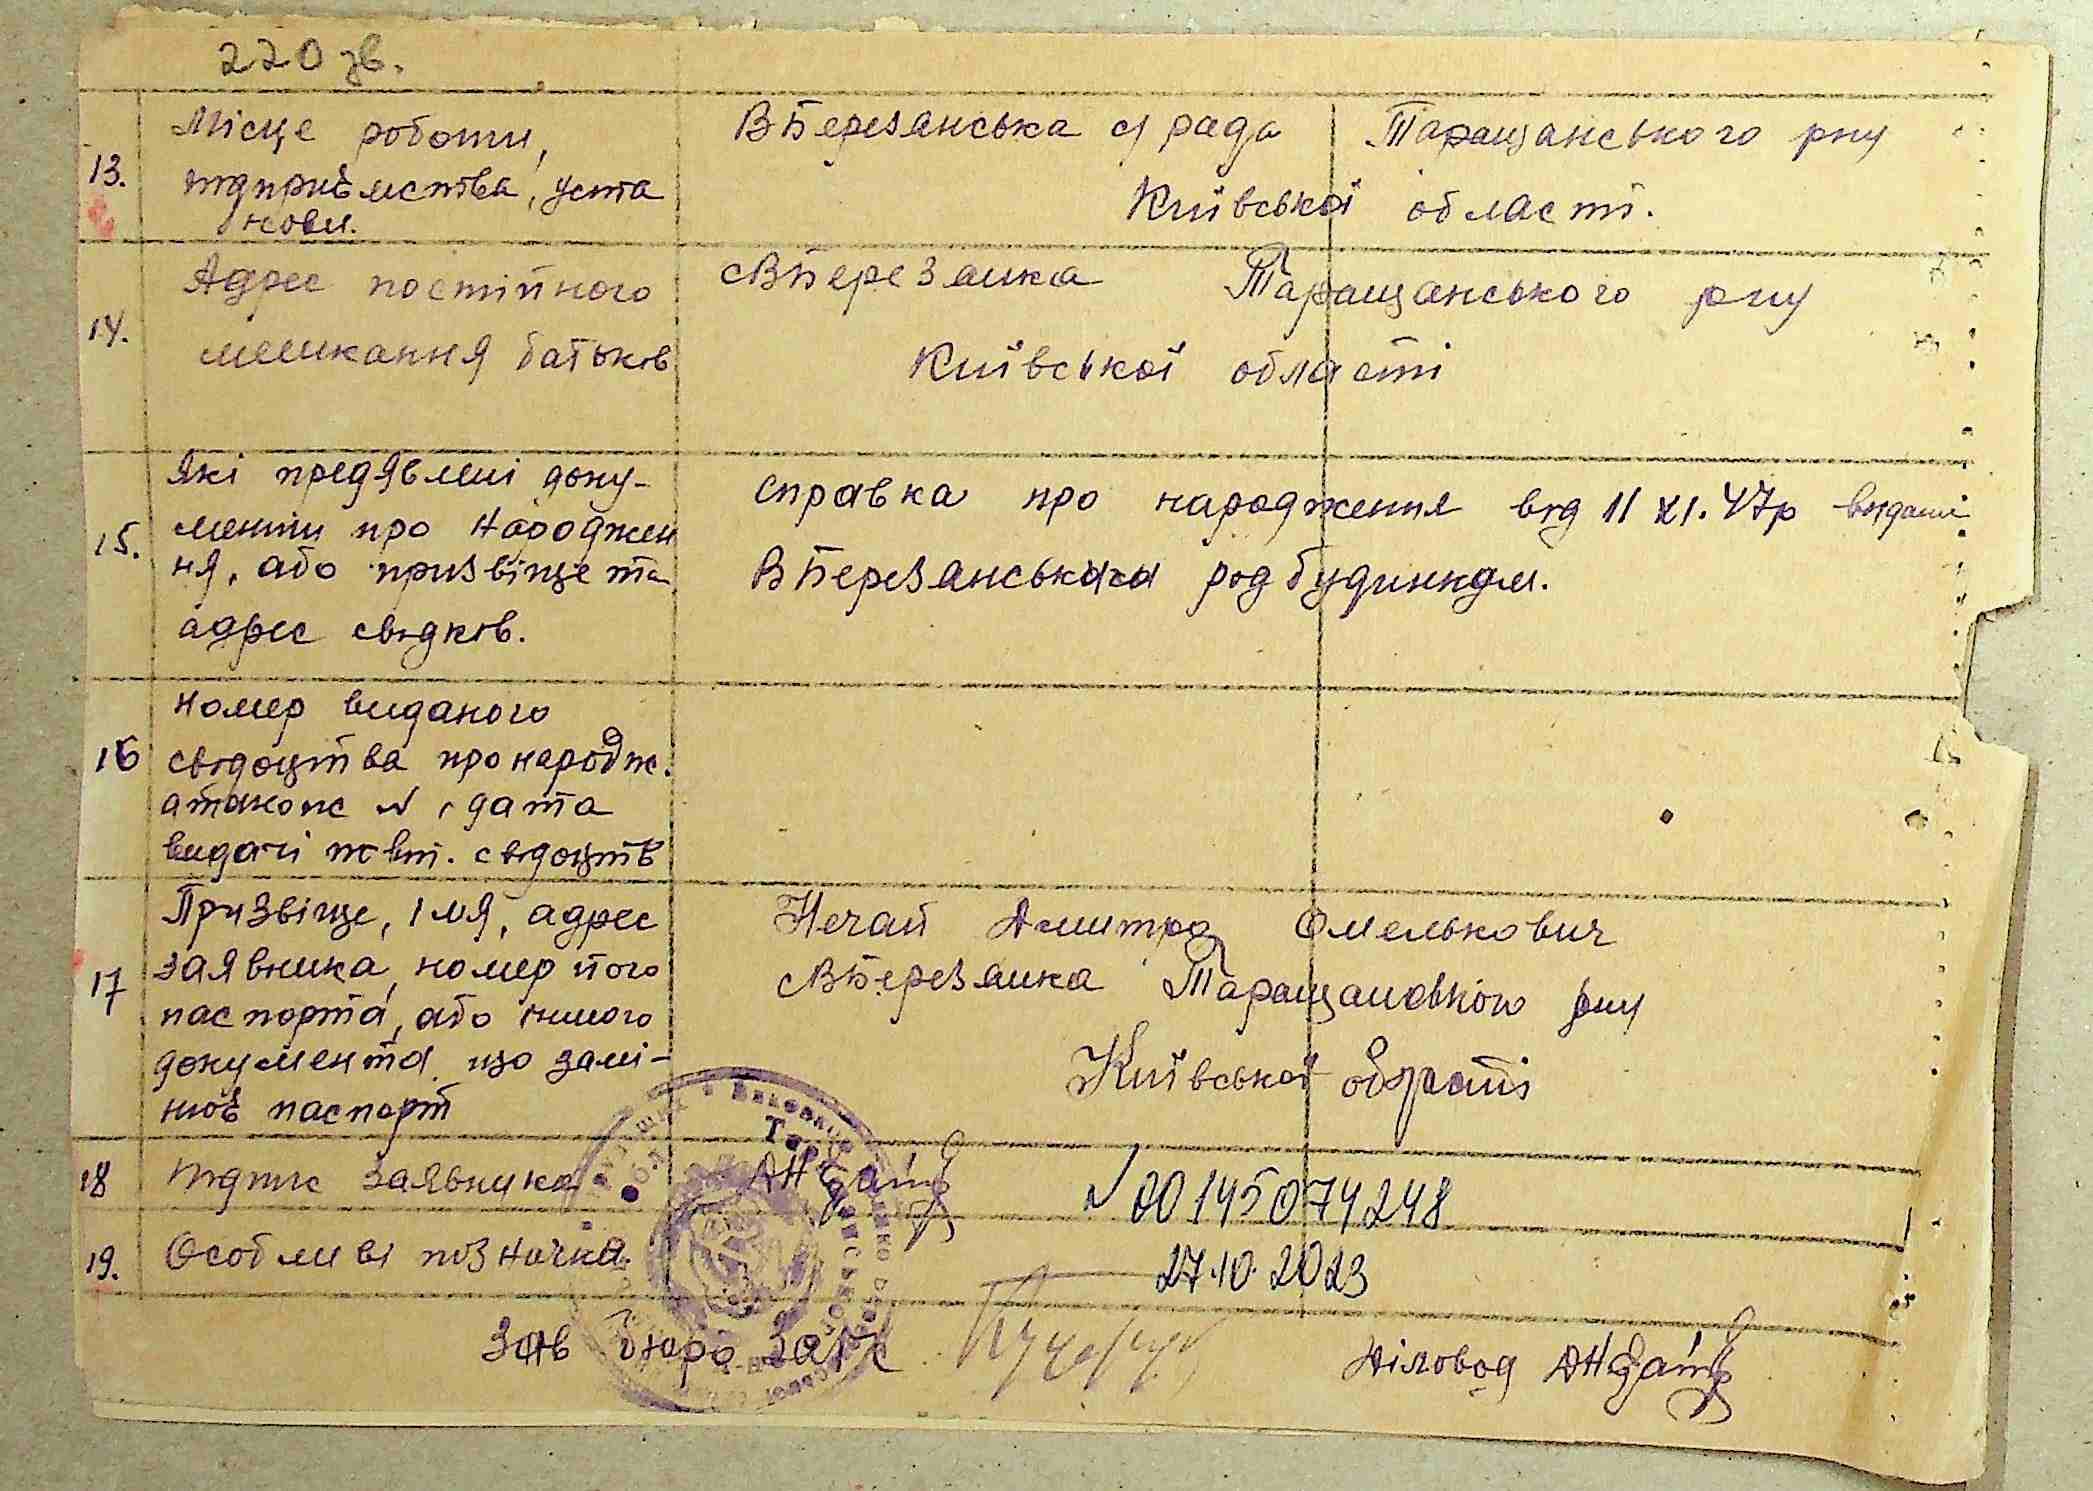 220 зв.
13.
Місце роботи,
підприємства, уста
нови.
ВБерезанська с/рада Таращанського рну
Київської області.
14.
Адрес постійного
мешкання батьків
с ВБерезанка Таращанського рну
Київської області
15.
Які предявлені доку-
менти про народжен
ня, або призвіще та
адрес свідків.
справка про народження від 11 XI. 47р видані
ВБерезанською род будинком.
16
номер виданого
свідоцтва про народж.
а також № і дата
видачі повт. свідоцтв
17
Призвіще, імя, адрес
заявника, номер його
паспорта, або іншого
документа що замі-
нює паспорт
Нечай Дмитро Омелькович
с ВБерезанка Таращанського рну
Київської області
18
підпис заявника
№ 00145074248
19.
Особливі позначки
27.10.2023
Зав бюро Загс
Діловод